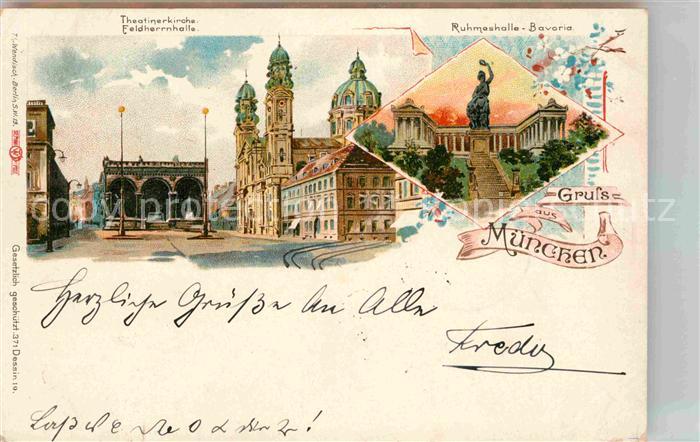 Theatinerkirche.
Feldherrnhalle.
Ruhmeshalle - Bavaria.
Gruß
aus
München
Herzliche Grüße An Alle
Fredy
Gesetzlich geschützt. 371 Dessin 19.